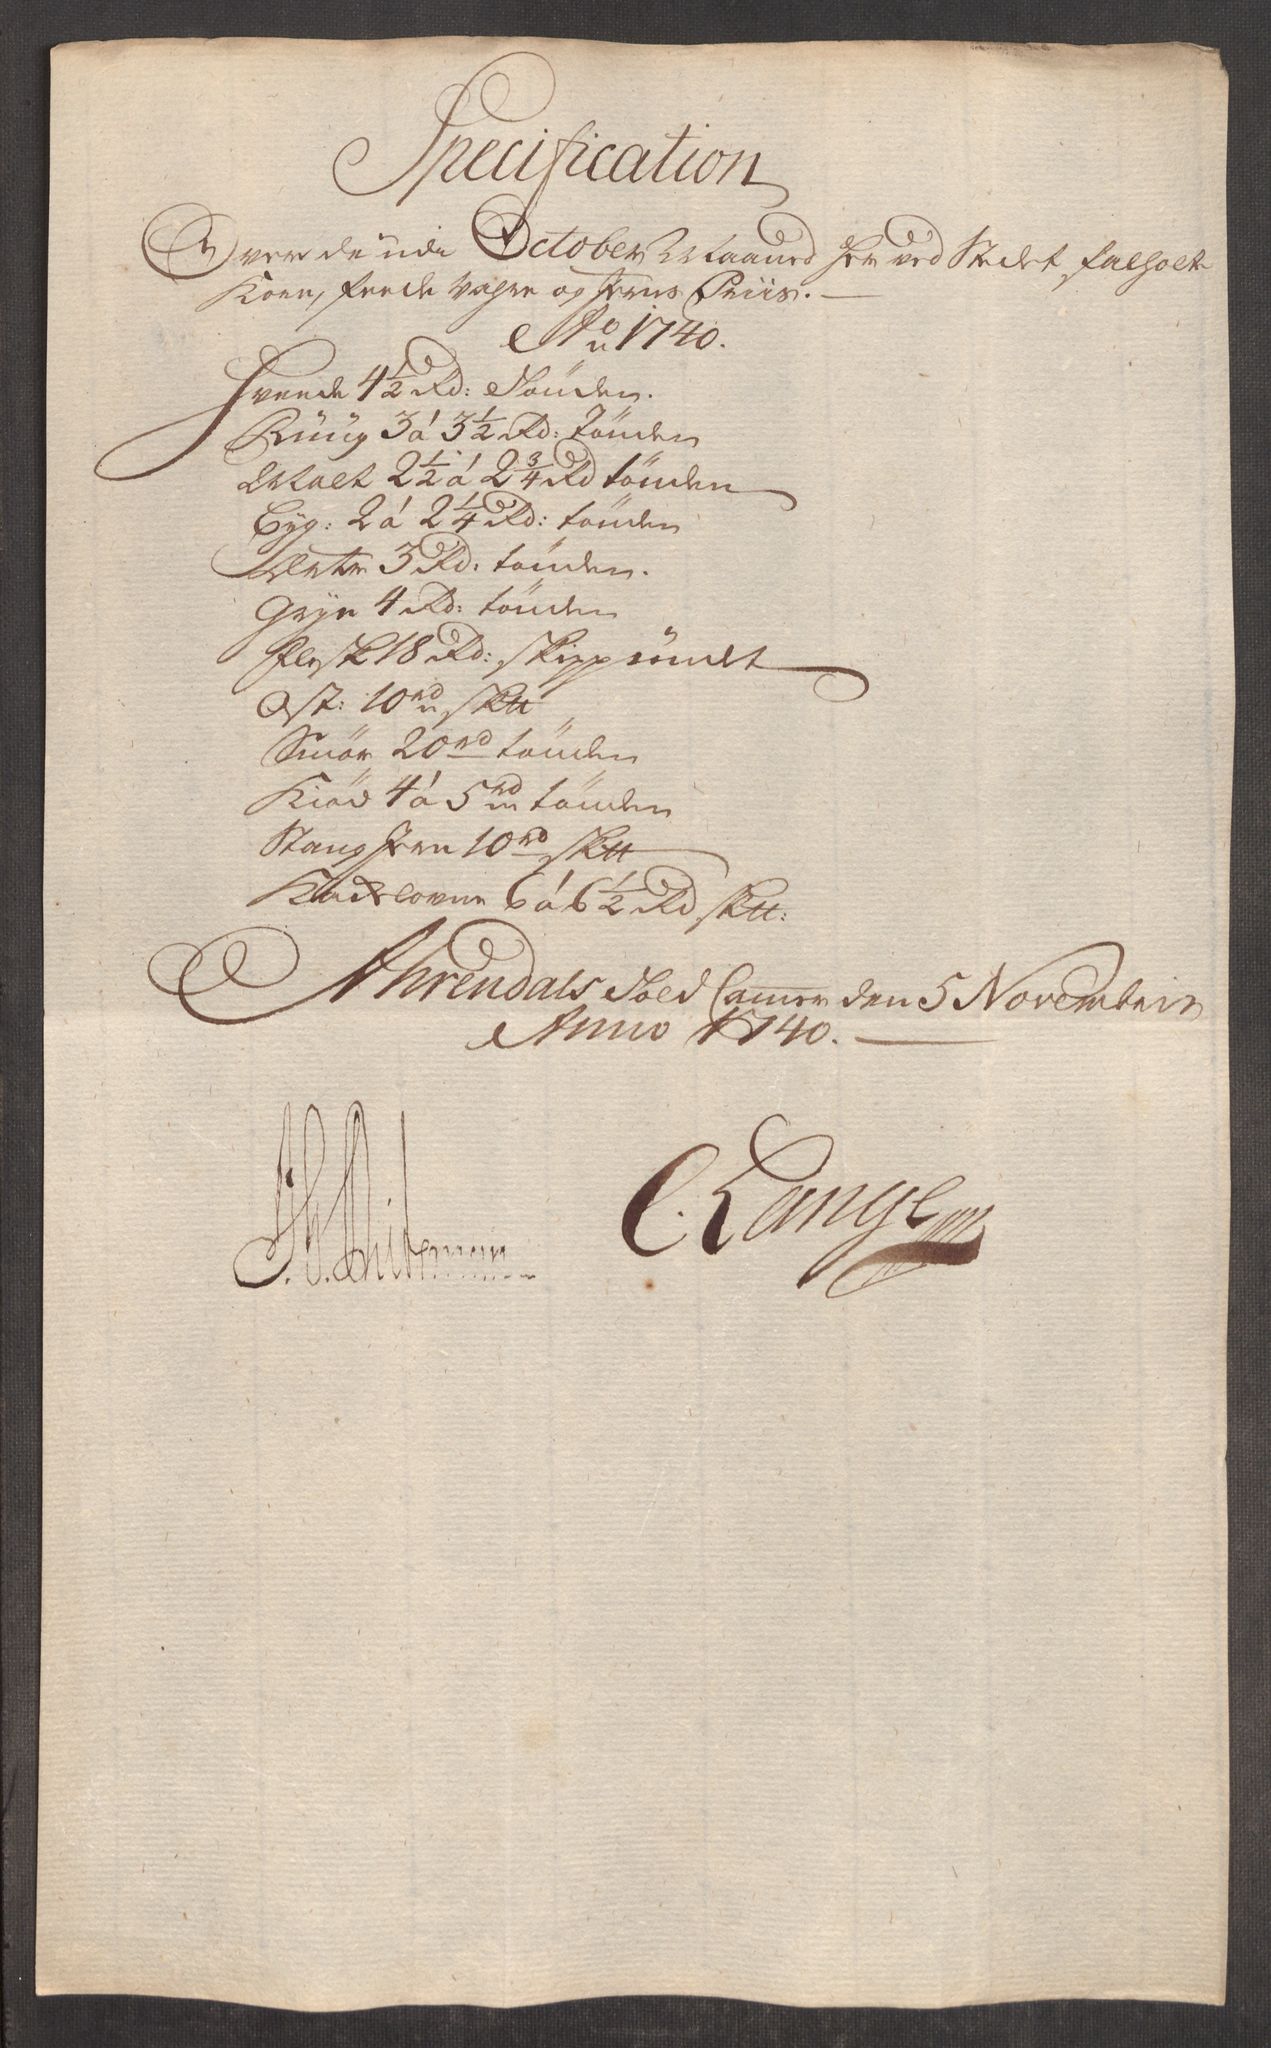 Specification
Over de udi October Maaned her ved Stedet falholte
Korn, feede Vahre og Jerns Priis.
Ao 1740.
Hvede 4 1/2 Rd: Tönden.
Rüüg 3 á 3 1/2 Rd: tönden
Malt 2 1/2 á 2 3/4 Rd tönden
Byg: 2 á 2 1/4 Rd: tönden
Erter 3 Rd: tönden.
Gryn 4 Rd: tönden
Flesk 18 Rd: skippundt
Ost: 10 rd sktt
Smör 20 rd tönden
Kiöd 4 á 5 rd tönden
Stang Jern 10 rd sktt
Kackelovne 6 á 6 1/2 Rd sktt:
Ahrendals Told Camer den 5 Novembris
Anno 1740.
C. Lange